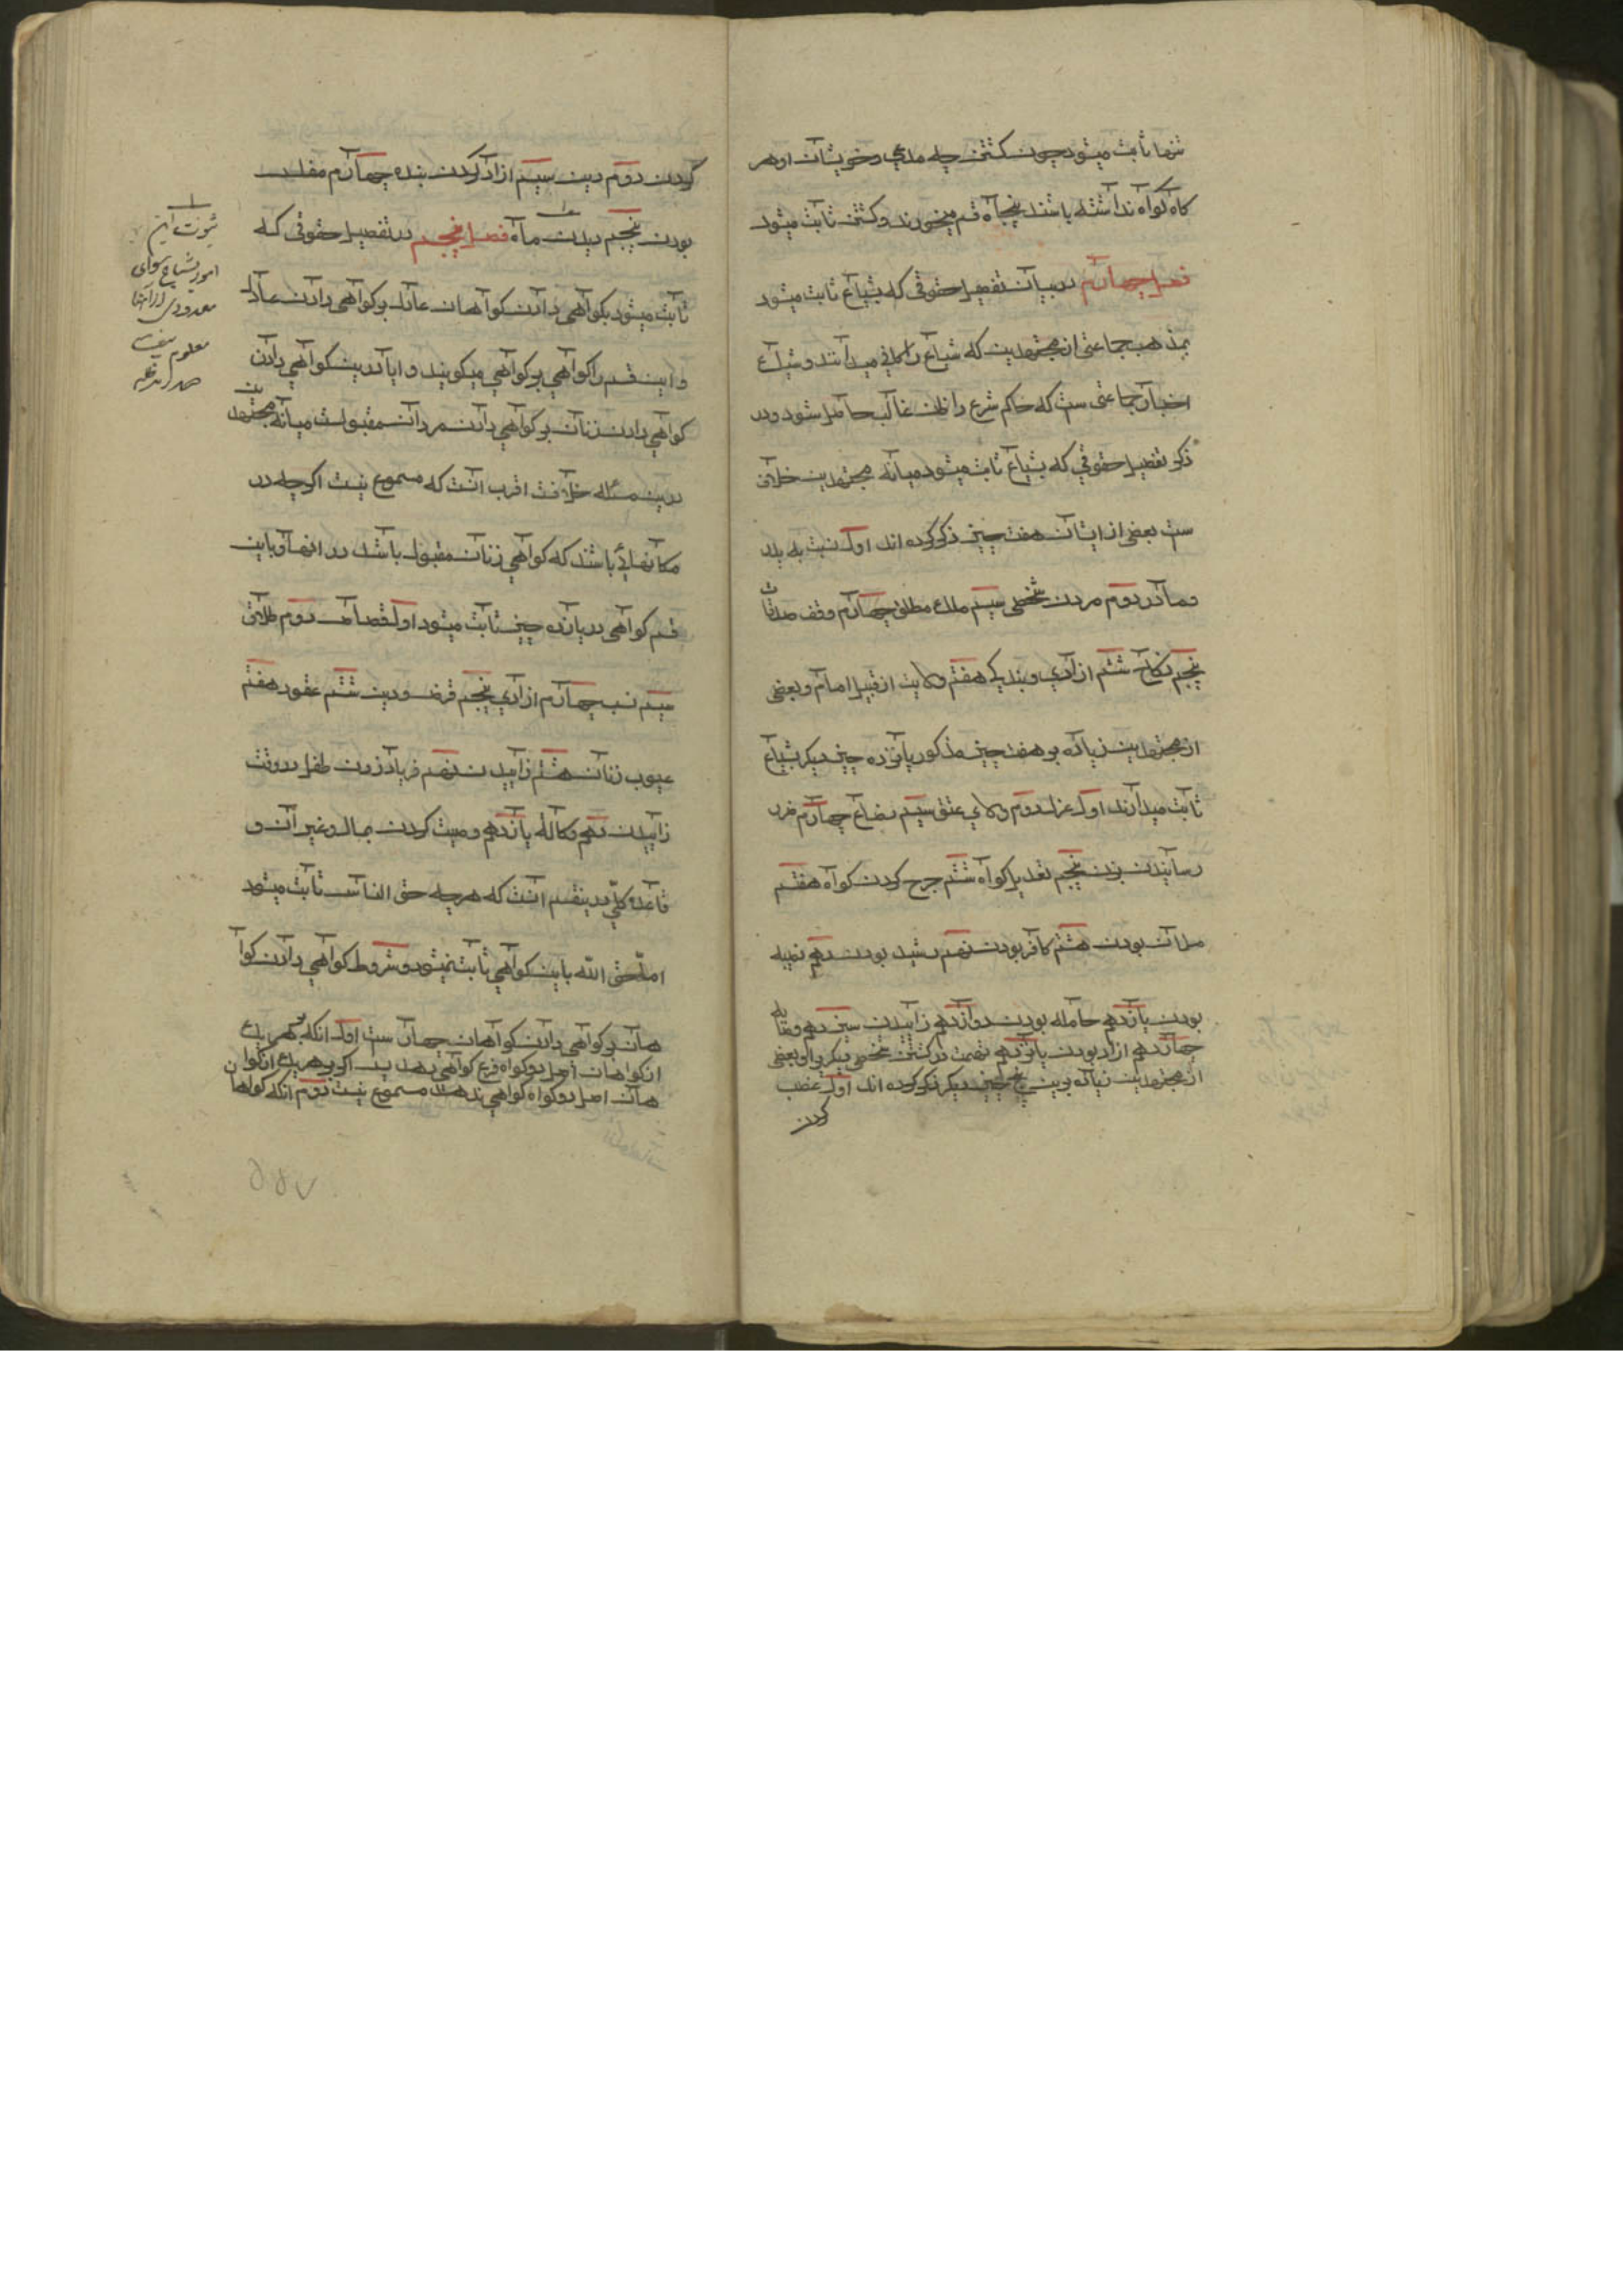 تنها ثابت میشود چون کشتن چه مدعی و خویشان او هر
کاه کواه نداشته باشند پنجاه قسم میخورند و کشتن ثابت میشود
فصل چهارم در بیان تفصیل حقوقی که بشیاع ثابت میشود
بمذهب جماعتی از مجتهدین که شیاع را کافی میدانند و شیاع
اخبار جماعتی ست که حاکم شرع را ظن غالب حاصل شود و در
ذکر تفصیل حقوقی که بشیاع ثابت میشود میانه مجتهدین خلاف
ست بعضی از ایشان هفت چیز ذکر کرده اند اول نسبت به پدر
و مادر دوم مردن شخصی سیم ملک مطلق چهارم وقف صدقات
پنجم نکاح ششم ازادی و بندکی هفتم ولایت از قبل امام و بعضی
از مجتهدین زیاده بر هفت چیز مذکور پانزده چیز دیکر بشیاع
ثابت میدارند اول عزل دوم ولای عتق سیم رضاع چهارم ضرر
رسانیدن بزن پنجم تعدیل کواه ششم جرح کردن کواه هفتم
مسلمان بودن هشتم کافر بودن نهم رشید بودن دهم سفیه
بودن یازدهم حامله بودن دوازدهم زاییدن سیزدهم وصایه
چهاردهم ازاد بودن پانزدهم تهمت در کشتن شخصی دیکری او بعضی
از مجتهدین زیاده برین پنج چیز دیکر ذکر کرده اند اول غصب
کردن
کردن دوم دین سیم ازاد کردن بنده چهارم مفلس
بودن پنجم دیدن ماه فصل پنجم در تفصیل حقوقی که
ثابت میشود بکواهی دادن کواهان عادل بر کواهی دادن عادل
و این قسم را کواهی بر کواهی میکویند و ایا درین کواهی دادن
کواهی دادن زنان بر کواهی دادن مردان مقبولست میانه مجتهدین
درین مسأله خلافست اقرب انست که مسموع نیست اکرچه در
مکانهایی باشند که کواهی زنان مقبول باشد در انها و باین
قسم کواهی در یازده چیز ثابت میشود اول قصاص دوم طلاق
سیم نسب چهارم ازادی پنجم قرض و دین ششم عقود هفتم
عیوب زنان هشتم زاییدن نهم فریاد زدن طفل در وقت
زاییدن دهم وکاله یازدهم وصیت کردن بمال و غیر آن و
قاعده کلی درینقسم انست که هرچه حق الناس ثابت میشود
اما حق الله باین کواهی ثابت نمیشود و شروط کواهی دادن کوا
هان بر کواهی دادن کواهان چهار ست اول انکه بر هر یک
از کواهان اصل دو کواه فرع کواهی بدهند پس اکر بر هر یک از کوا
هان اصل دو کواه کواهی ندهند مسموع نیست دوم انکه کواهان
ثبوت این
امور بشیاع سوای
معدودی از آنها
معلوم نیست
صدر دام ظله
۵۵۷